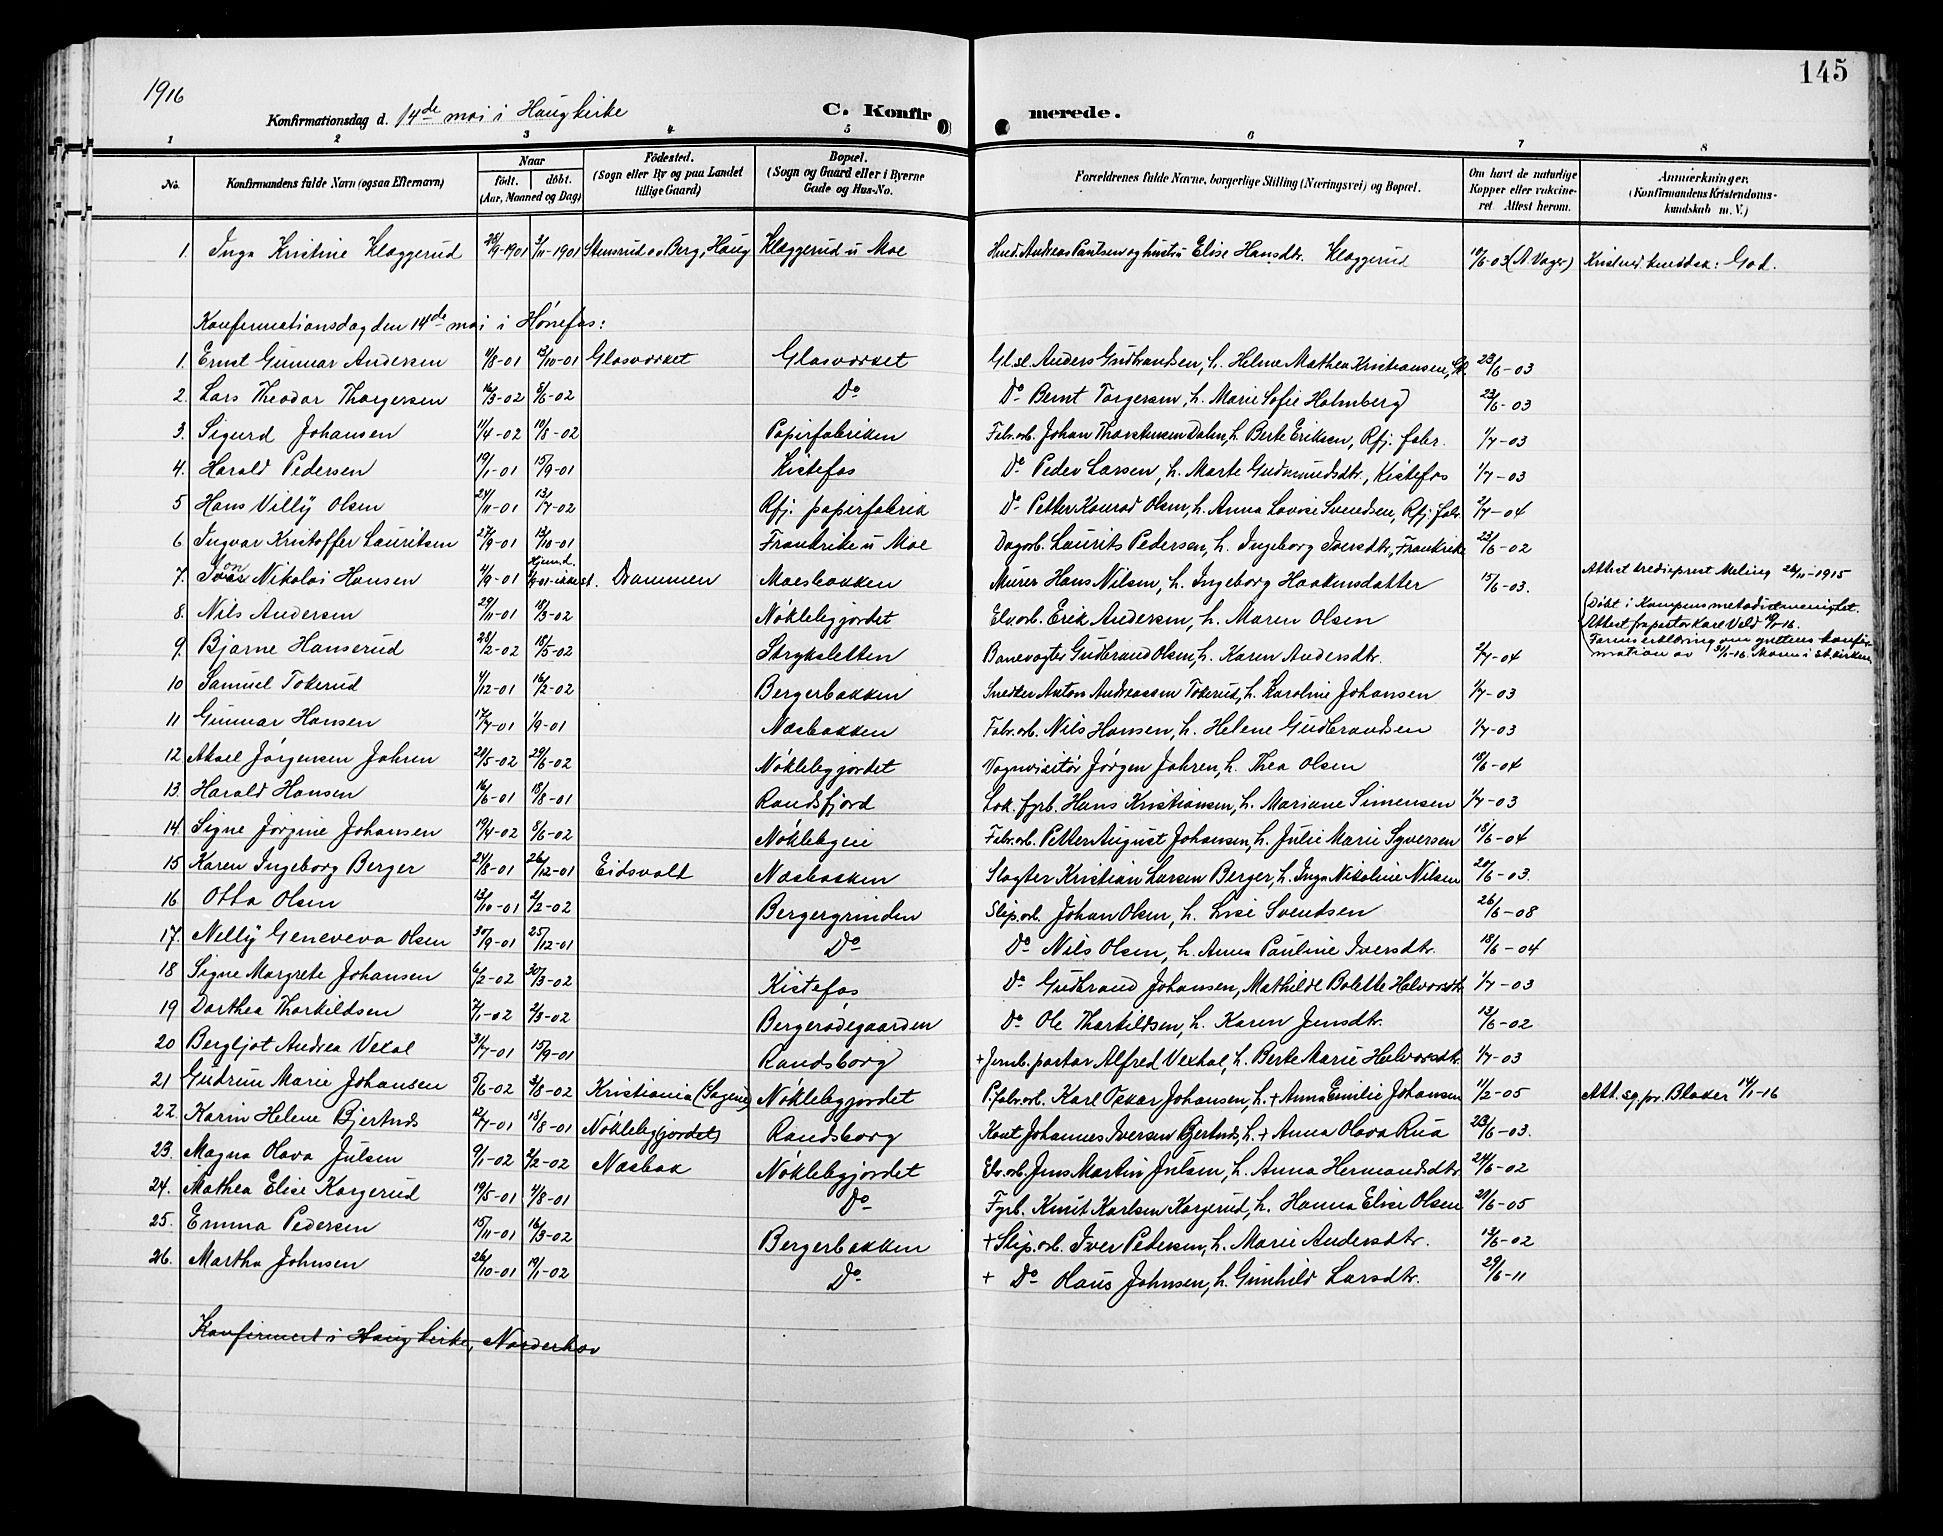 145
1916
Konfirmationsdag d. 14de mai i Haug kirke C. Konfirmerede.
1 2 3 4 5 6 7 8
No. Konfirmandens fulde Navn (ogsaa Efternavn) Naar født. døbt. (Aar, Maaned og Dag) Fødested. (Sogn eller By og paa Landet tillige Gaard) Bopæl. (Sogn og Gaard eller i Byerne Gade og Hus-No. Forældrenes fulde Navne, borgerlige Stilling (Næringsvei) og Bopæl. Om havt de naturlige Kopper eller vakcineret. Attest herom. Anmerkninger. (Konfirmandens Kristendomskundskab m. V.)
1. Inga Kristine Klæggerud 28/9-1901 3/11-1901 Stensrud av Berg, Haug Klæggerud u Moe Andreas Paulsen og hustru Elise Hansdtr. Klæggerud 10/6-03 (A Vager) Kristend. kundsk: God.
Konfirmationsdag den 14de mai i Hönefos:
1. Ernst Gunnar Andersen 11/8-01 13/10-01 Glasværket Glasværket Gl.sl. Anders Gudbrandsen, h. Helene Mathea Kristiansen, Gl. 23/6-03
2. Lars Theodor Thorgersen 16/3-02 8/6-02 Do Do Bernt Torgersen, h. Marie Sofie Holmberg 23/6-03
3. Sigurd Johansen 11/4-02 10/8-02 Papirfabriken Fabr.arb. Johan Thorstensen Dalen, h. Berte Eriksen, Rfj. fabr. 1/7-03
4. Harald Pedersen 19/1-01 15/9-01 Kistefos Do Peder Larsen, h. Marte Gudmundsdtr., Kistefos 1/7-03
5 Hans Villÿ Olsen 24/11-01 13/7-02 Rfj. papirfabrik Do Petter Konrad Olsen, h. Anna Lovise Svendsen, Rfj. fabr. 2/7-04
6 Ingvar Kristoffer Lauritsen 27/9-01 13/10-01 Frankrike u Moe Dagarb. Laurits Pedersen, h. Ingeborg Iversdtr., Frankrike 23/6-02
7. Nikolai Hansen 4/9-01 Drammen Moesbakken Murer Hans Nilsen, h. Ingeborg Haakensdatter 15/6-03. Attest Meling 26/11-1915
8. Nils Andersen 29/11-01 18/3-02 Nöklebygjordet Elv.arb. Erik Andersen, h. Maren Olsen (Döbt i Kampens metodistmenighet. Attest fra pastor Karl
9. Bjarne Hanserud 28/2-02 18/5-02 Stryksletten Banevogter Gudbrand Olsen, h. Karen Andersdtr. 2/7-04 erklæring om guttens konfirmation av 31/1-16
10 Samuel Tokerud 4/12-01 16/2-02 Bergerbakken Snedker Anton Andreassen Tokerud, h. Karoline Johansen 1/7-03
11 Gunnar Hansen 17/7-01 1/9-01 Næsbakken Fabr.arb. Nils Hansen, h. Helene Gudbrandsen 1/7-03
12 Aksel Jørgensen Jahren 20/5-02 29/6-02 Nöklebygjordet Vognvisitør Jørgen Jahren, h. Thea Olsen 18/6-04
13. Harald Hansen 16/6-01 18/8-01 Randsfjord Lok. fyrb. Hans Kristiansen, h. Mariane Simensen 1/7-03
14. Signe Jørgine Johansen 19/4-02 8/6-02 Nöklebyeie Fabr.arb. Petter August Johansen, h. Julie Marie Syversen 18/6-04
15 Karen Ingeborg Berger 24/8-01 26/12-01 Eidsvold Næsbakken Slagter Kristian Larsen Berger, h. Inga Nikoline Nilsen 20/6-03.
16 Otto Olsen 13/10-01 2/2-02 Bergergrinden Slip.arb. Johan Olsen, h. Lise Svendsen 26/6-08
17. Nellÿ Geneveva Olsen 30/9-01 25/12-01 Do Do Nils Olsen, h. Anna Pauline Iversdtr. 18/6-04
18 Signe Margrete Johansen 6/2-02 30/3-02 Kistefos Do Gudbrand Johansen, Mathilde Bolette Halvorsdtr. 1/7-03
19 Dorthea Thorkildsen 7/1-02 2/3-02 Bergerødegaarden Do Ole Thorkildsen, h. Karen Jensdtr. 13/6-02
20 Bergljot Andrea Vexal 31/7-01 15/9-01 Randsborg + Jernb.portør Alfred Vexhal, h. Berte Marie Halvorsdtr. 1/7-03
21 Gudrun Marie Johansen 5/6-02 3/8-02 Kristiania (Sagene) Nöklebygjordet P.fabr.arb. Karl Oskar Johansen, h. + Anna Emilie Johansen 11/2-05 Att. sg.pr. Blaker 14/1-16
22. Karin Helene Bjertnæs 12/7-01 18/8-01 Nöklebygjordet Randsborg Kont Johannes Iversen Bjertnæs, h. + Anna Olava Rua 23/6-03.
23. Magna Olava Julsen 9/1-02 2/2-02 Næsbak Nöklebygjordet Elv.arb. Jens Martin Julsen, h. Anna Hermandsdtr. 24/6-02
24. Mathea Elise Korgerud 19/5-01 4/8-01 Do Fyrb. Knut Karlsen Korgerud, h. Hanna Elise Olsen 20/6-05
25. Emma Pedersen 15/11-01 16/3-02 Bergerbakken + Slip.arb. Iver Pedersen, h. Marie Andersdtr. 13/6-02
26. Martha Johnsen 26/10-01 19/1-02 Do + Do Hans Johnsen, h. Gunhild Larsdtr. 29/6-11
Konfirmert i Haug kirke, Norderhov